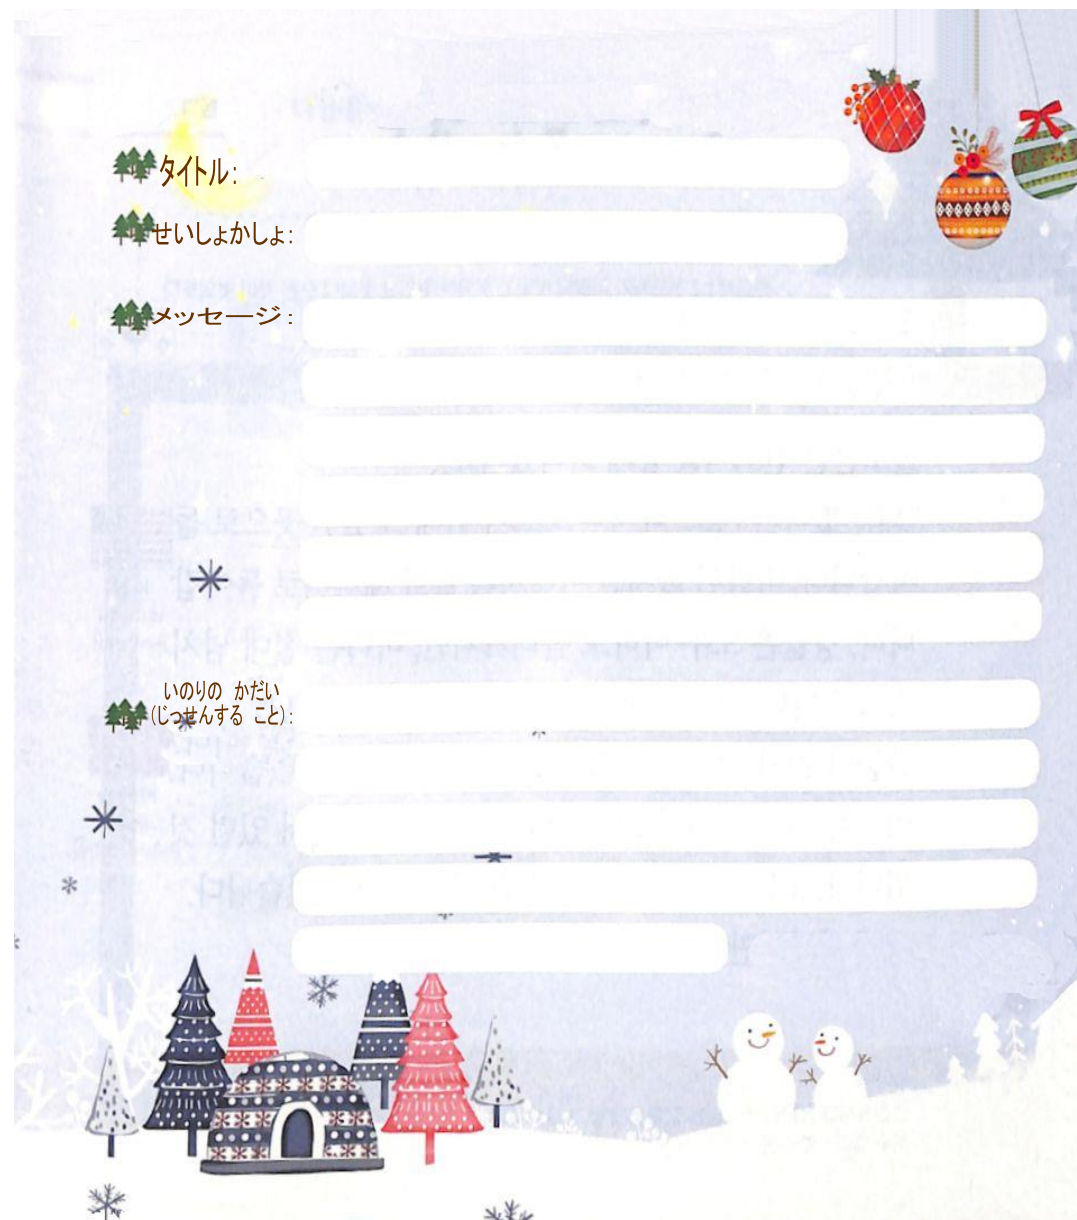 タイトル:
せいしょかしょ:
メッセージ:
いのりの かだい
(じっせんする こと):